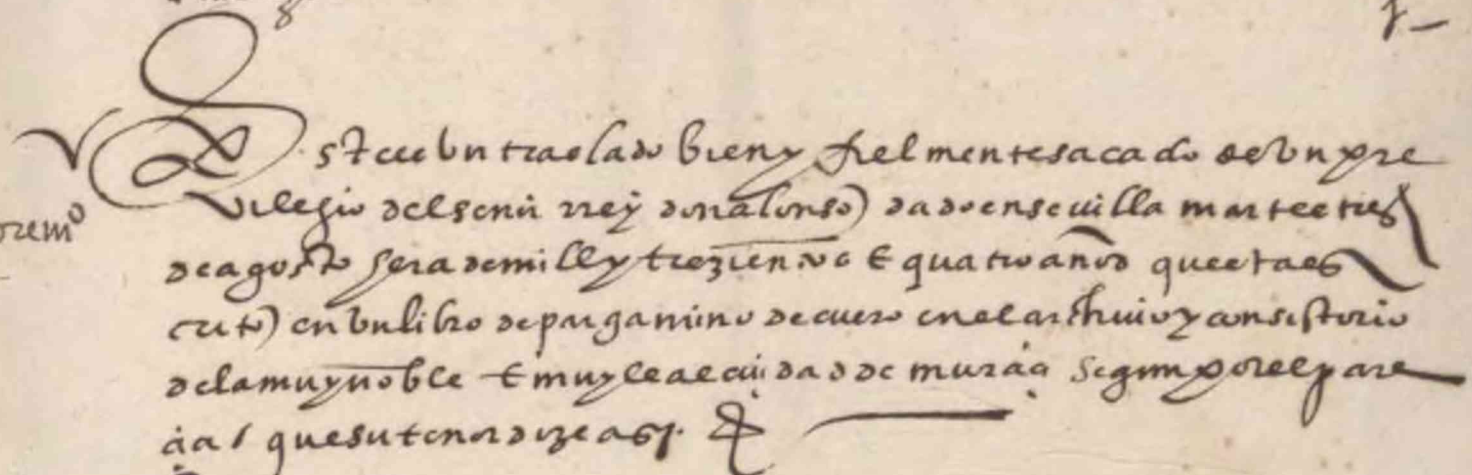 Este es un traslado bien y fielmente sacado de un pre
vilegio del señor rrey don alonso dado en sevilla martes tres
de agosto hera de mill y trezientos E quatro años que esta es
crito en un libro de pargamino de cuero en el archivio y consistorio
de la muy noble E muy leal ciudad de murcia segun por el pare
cia e que su tenor dize asy